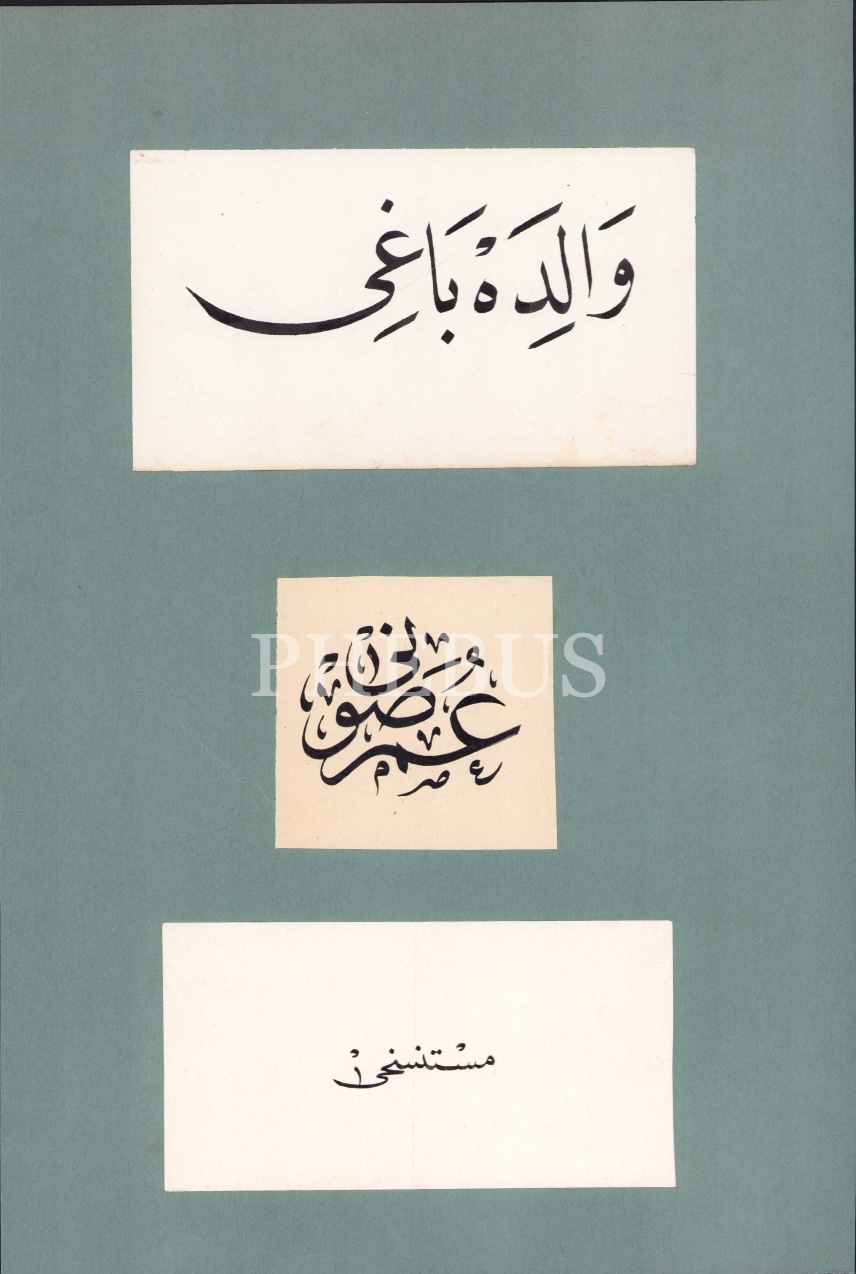 وَالِدَهْ بَاغِى
PHEBUS
عمر صونى
مستنسخى